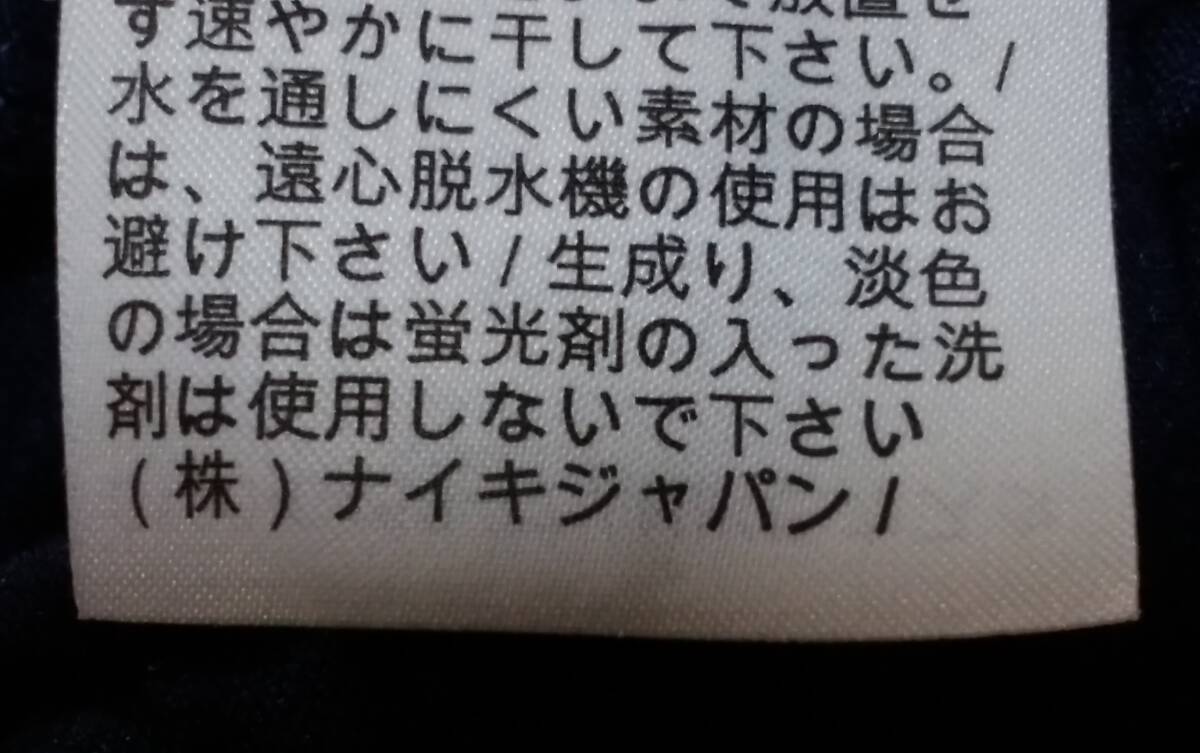 放置せ
ず速やかに干して下さい。/
水を通しにくい素材の場合
は、遠心脱水機の使用はお
避け下さい/生成り、淡色
の場合は蛍光剤の入った洗
剤は使用しないで下さい
(株)ナイキジャパン/